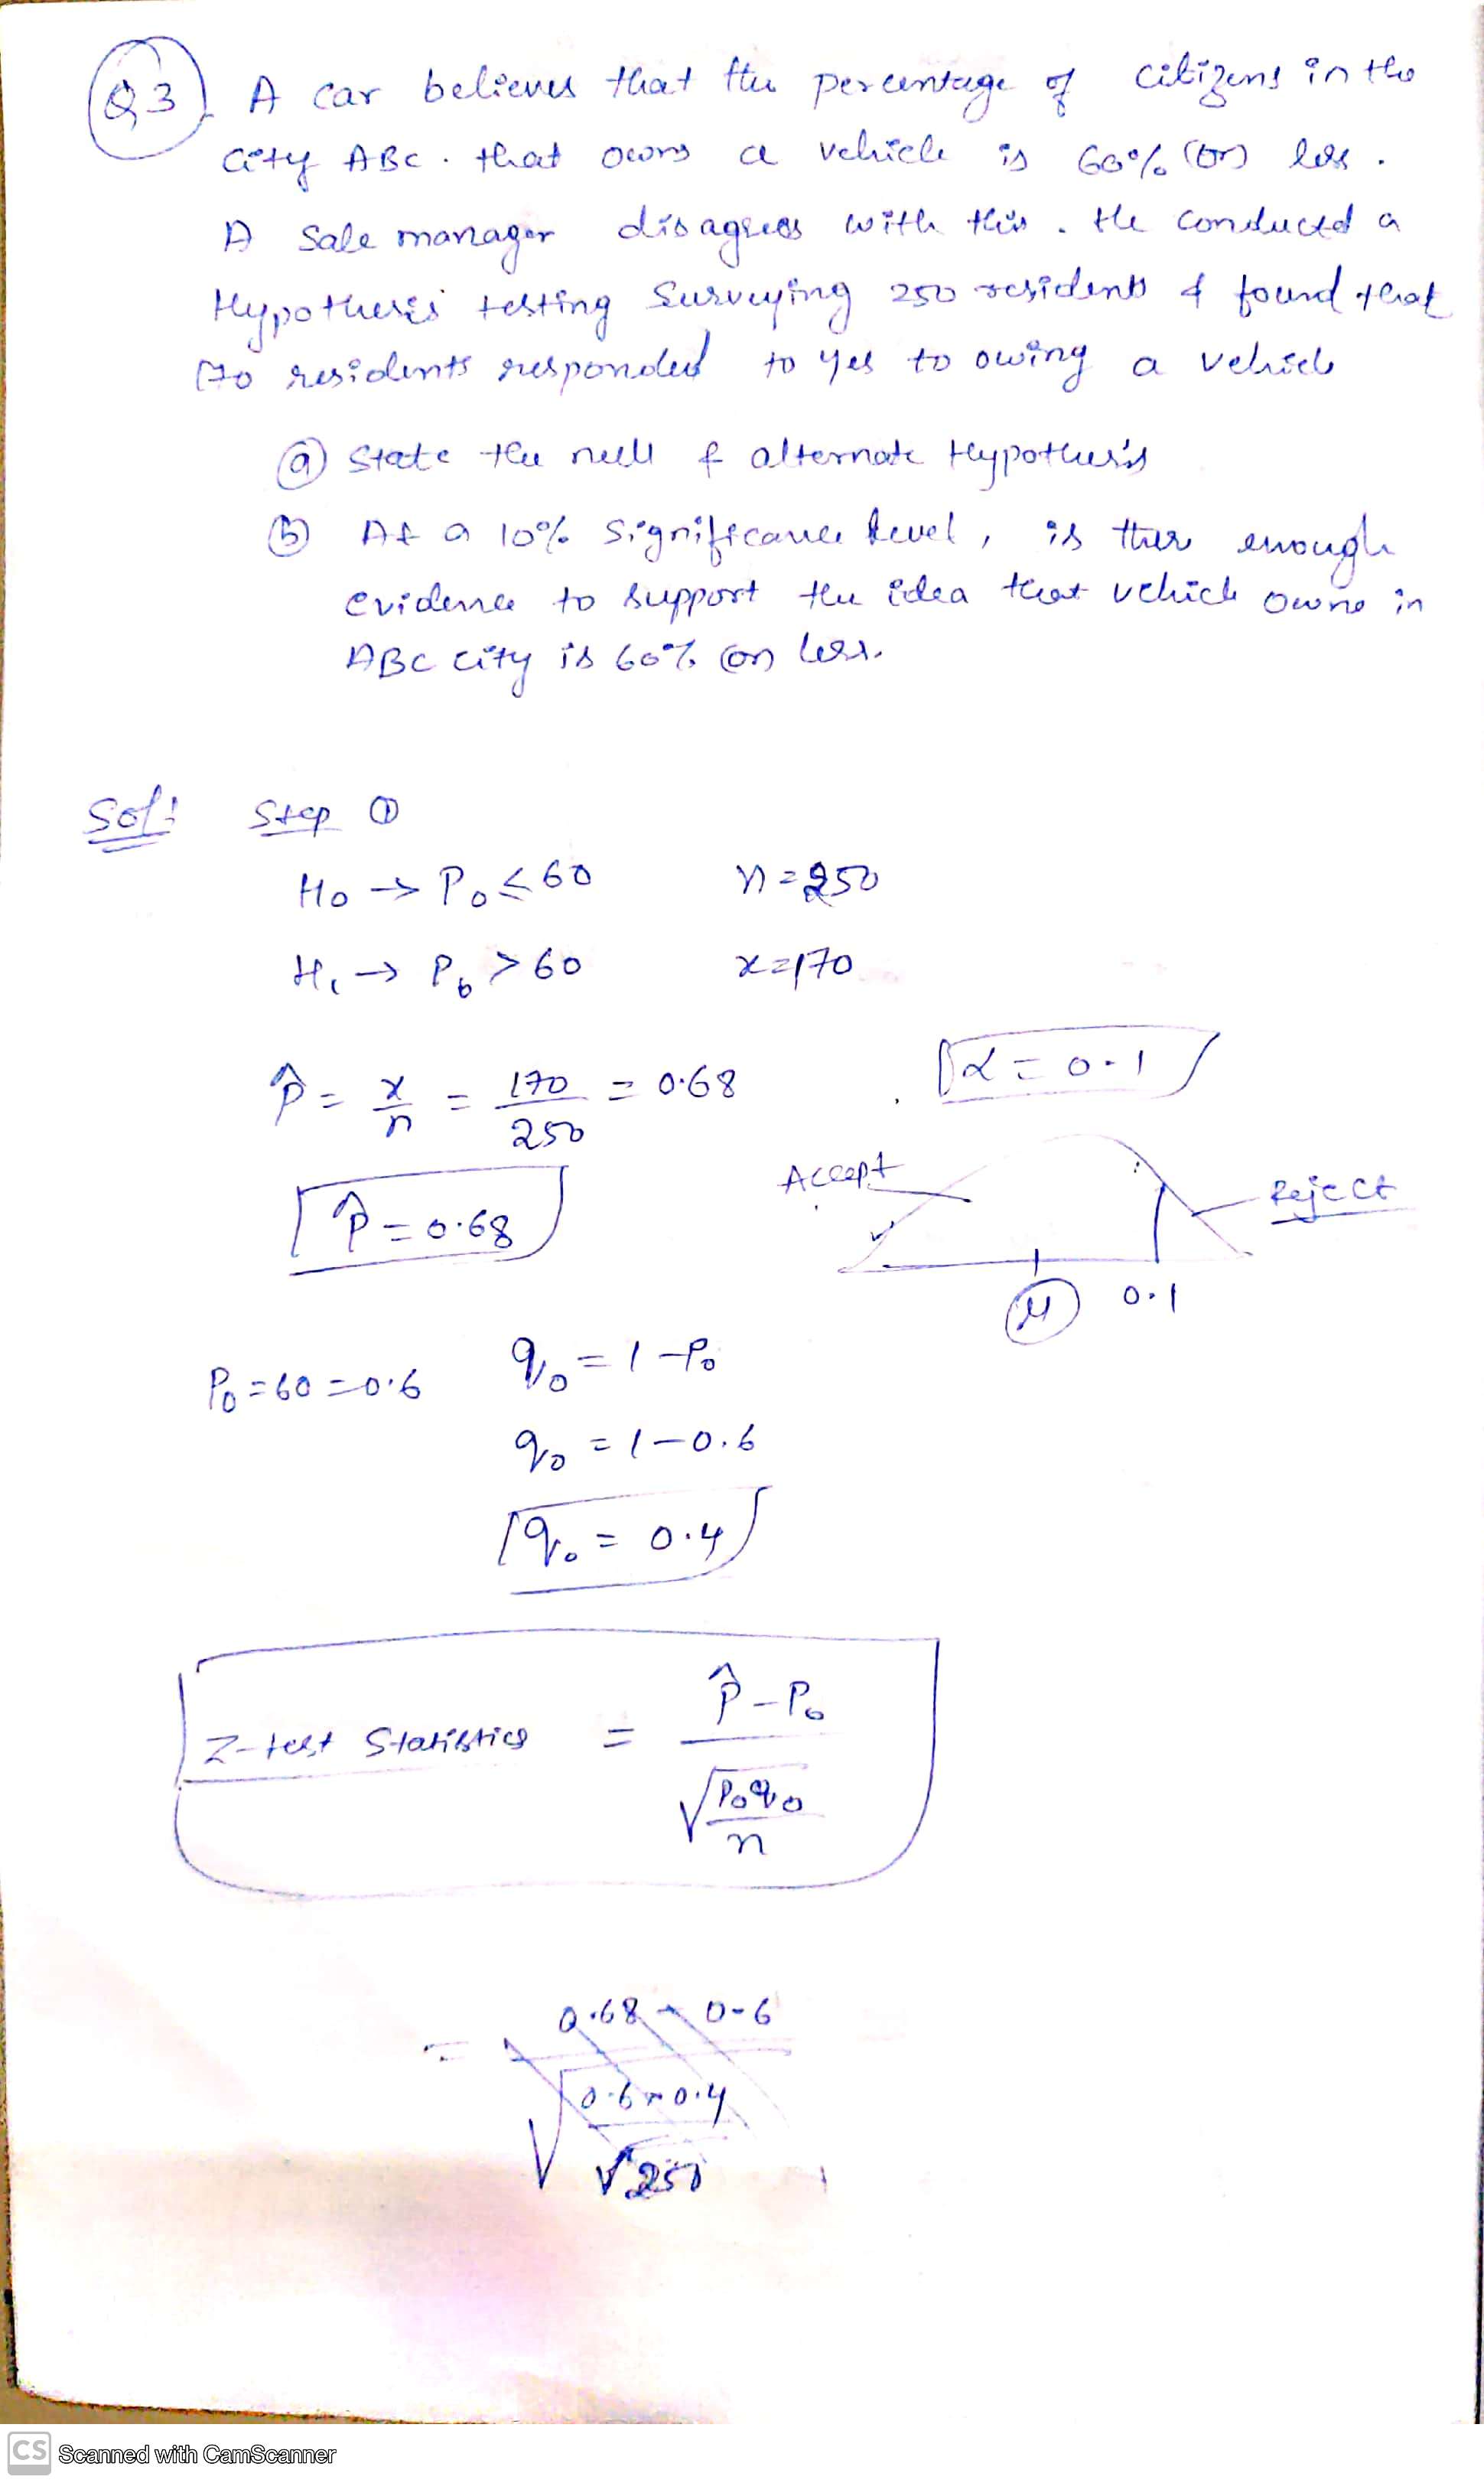 Q3. A car believes that the percentage of citizens in the
city ABC. that owns a vehicle is 60% (or) less.
A Sale manager disagrees with this. He conducted a
Hypothesis testing Surveying 250 residents & found that
170 residents responded to yes to owing a vehicle
(a) State the null & alternate Hypothesis
(b) At a 10% Significance level, is there enough
evidence to support the idea that vehicle owne in
ABC city is 60% (or) less.
Sol: Step ①
H₀ → P₀ ≤ 60 n = 250
H₁ → P₀ > 60 x = 170
p̂ = x/n = 170/250 = 0.68 α = 0.1
Accept Reject
p̂ = 0.68
μ 0.1
P₀ = 60 = 0.6 q₀ = 1 - P₀
q₀ = 1 - 0.6
q₀ = 0.4
Z-test Statistics = (p̂ - P₀) / √(P₀q₀/n)
= 0.68 - 0-6
√0.6 x 0.4
√250
CS Scanned with CamScanner